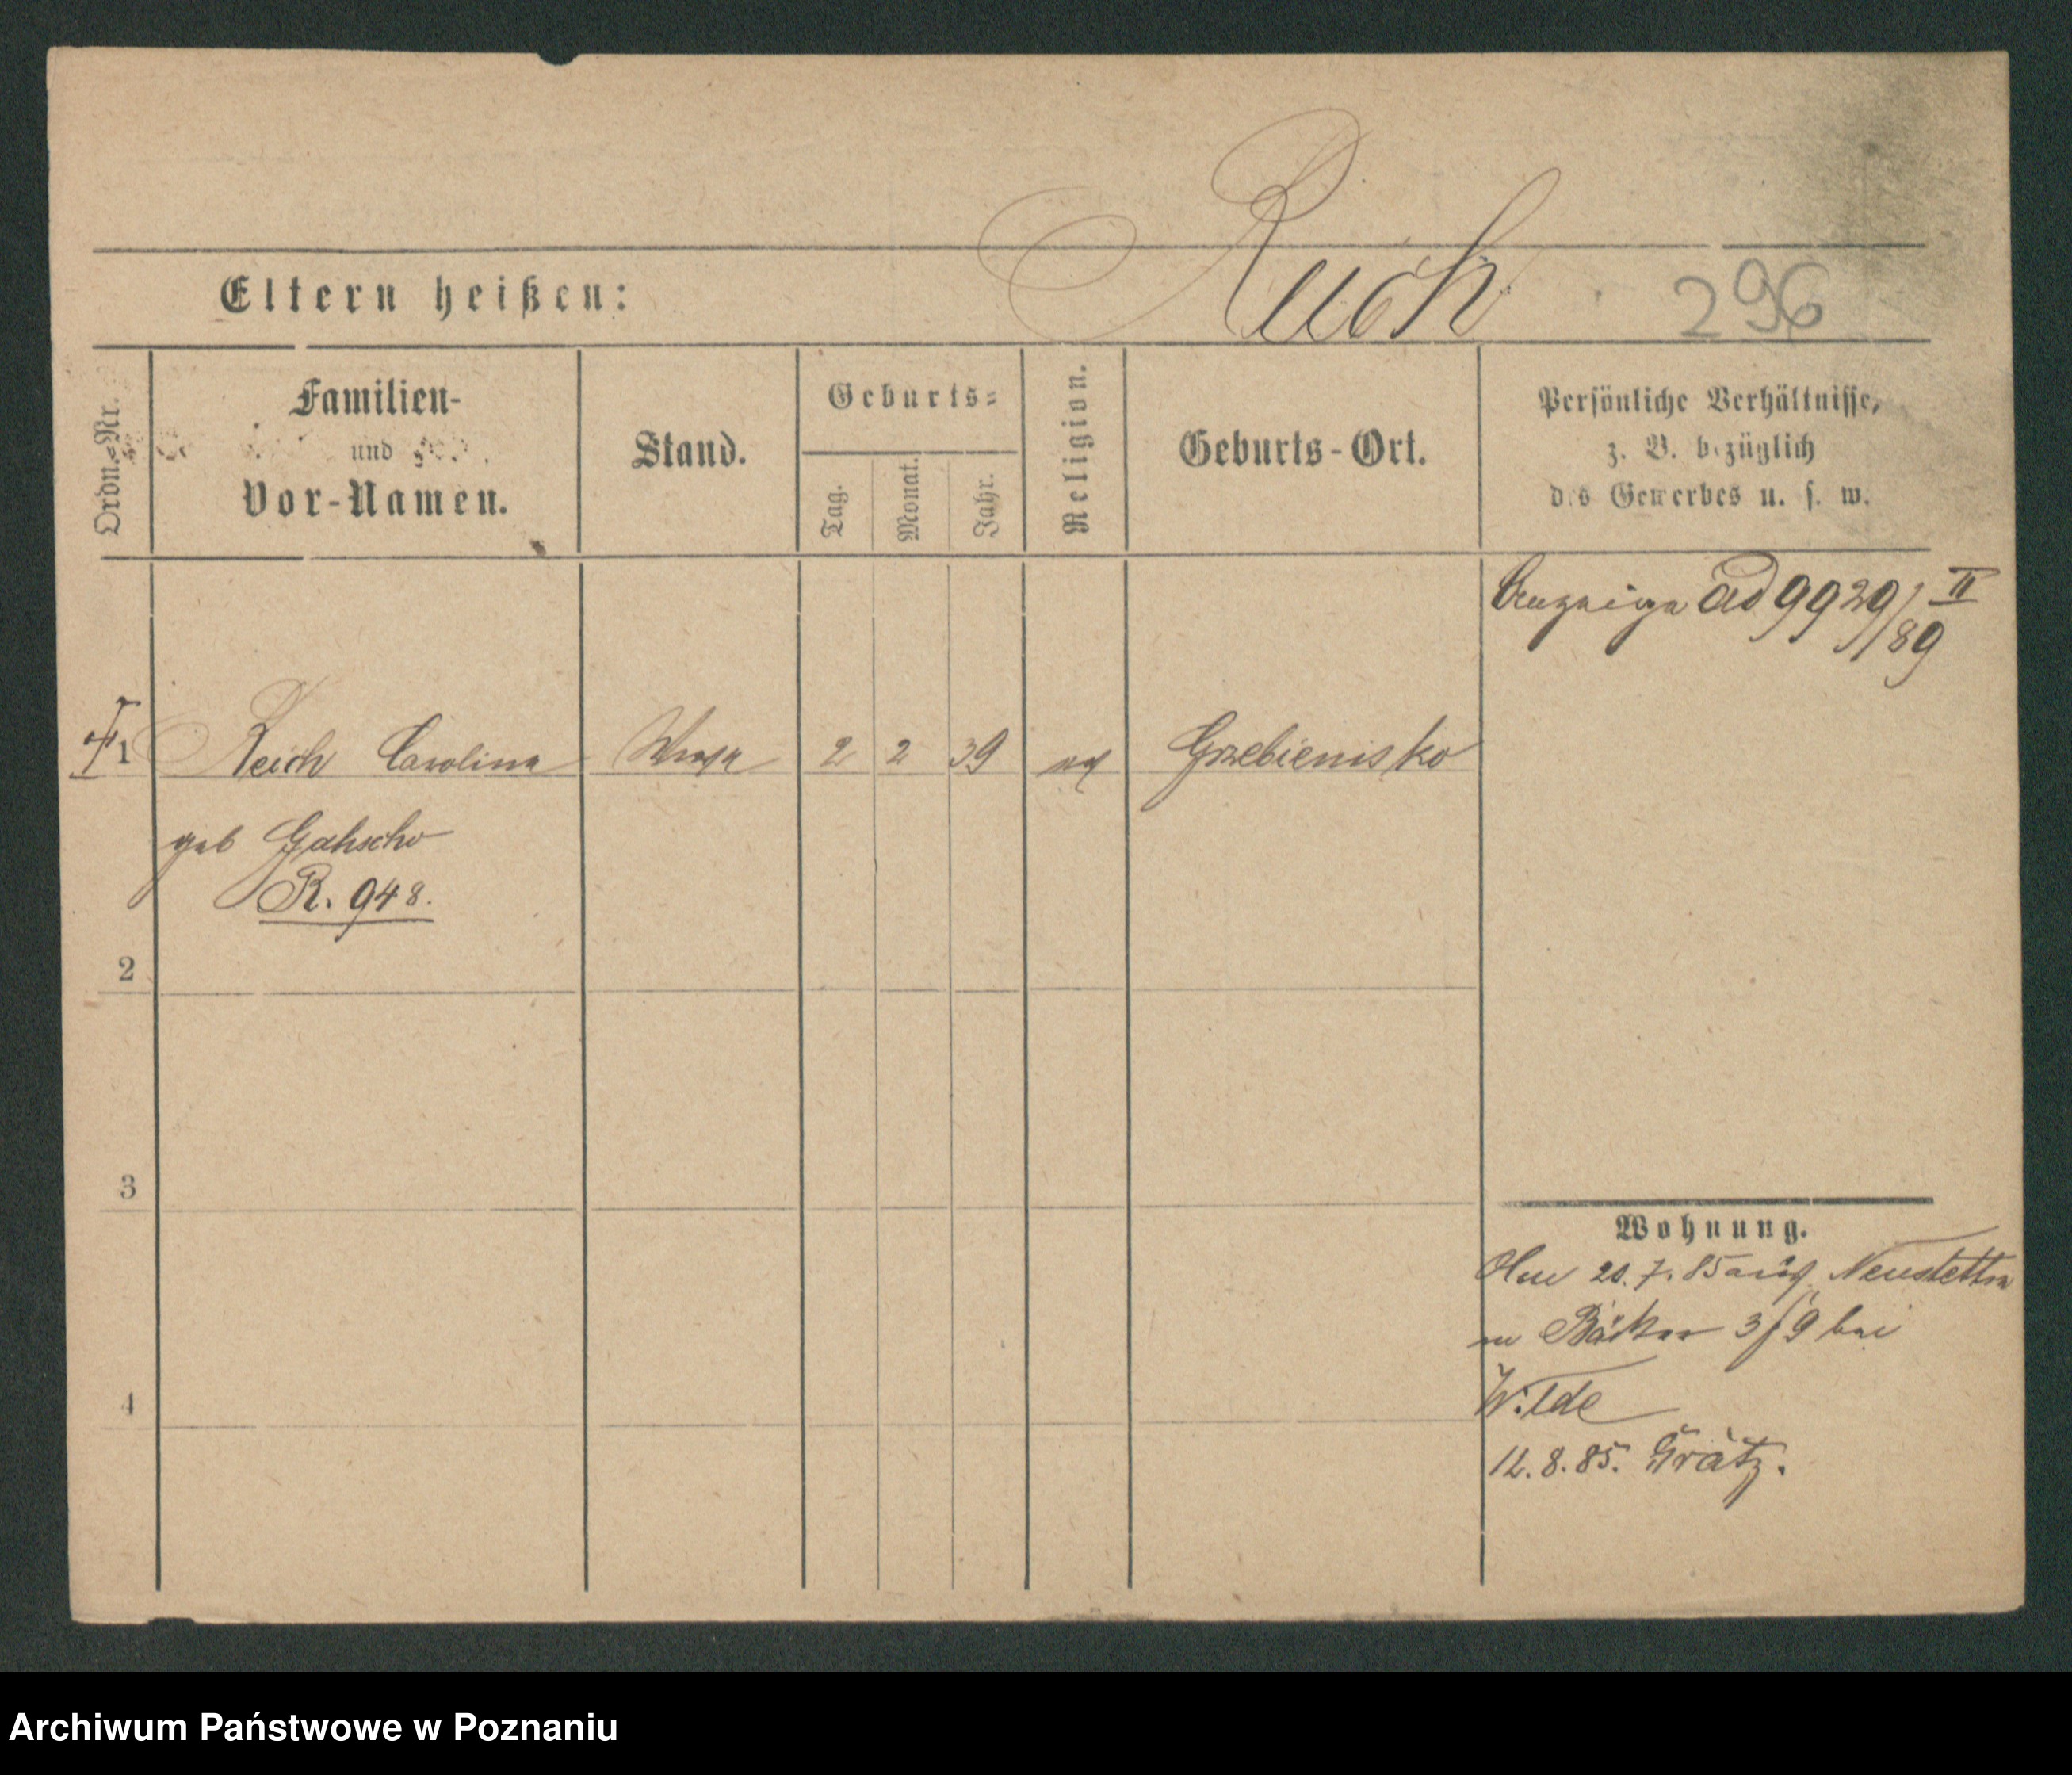 Reich
296
Eltern heißen:
Ordn.-Nr.
Familien-
und
Vor-Namen.
Stand.
Geburts-
Tag.
Monat.
Jahr.
Religion.
Geburts-Ort.
Persönliche Verhältnisse,
z. B. bezüglich
des Gewerbes u. s. w.
Anzeige ad 9929/89 II
1 Reich Carolina 2 2 39 Grzebienisko
geb Gahscho
R. 948.
2
3
4
Wohnung.
20.7.85 aus Neustettin
Bäcker 3/9 bei
Wilde
12.8.85. Grätz.
Archiwum Państwowe w Poznaniu